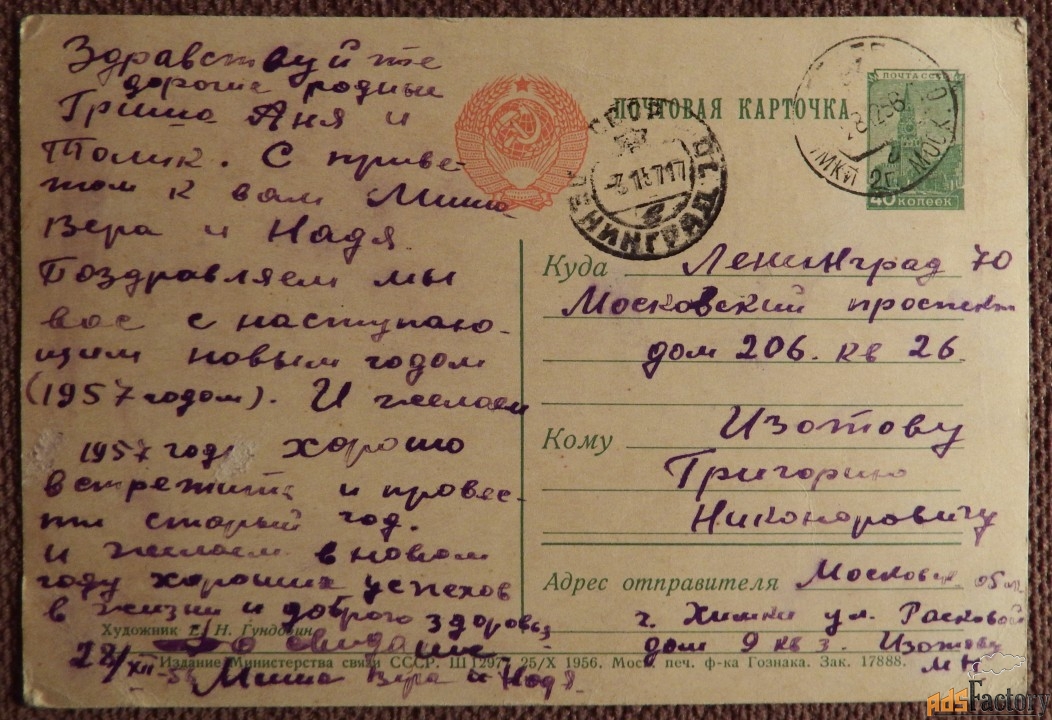 Здравствуйте
дорогие родные
Гриша Аня и
Толик. С приве-
том к вам Миша
Вера и Надя.
Поздравляем мы
вас с наступаю-
щим новым годом
(1957 годом). И желаем
1957 год хорошо
встретить и провес-
ти старый год.
и желаем в новом
году хороших успехов
в жизни и доброго здоровья
До свидание
28/XII-56 Миша Вера и Надя
Художник Е. Н. Гундобин
Издание Министерства связи СССР. Ш 1297. 25/X 1956. Моск. печ. ф-ка Гознака. Зак. 17888.
ПОЧТОВАЯ КАРТОЧКА
ПОЧТА СССР
40 КОПЕЕК
ЛЕНИНГРАД
Куда Ленинград 70
Московский проспект
дом 206. кв 26.
Кому Изотову
Григорию
Никоноровичу
Адрес отправителя Московская обл
г. Химки ул. Расковой
дом 9 кв 3. Изотову
М Н
AdsFactory